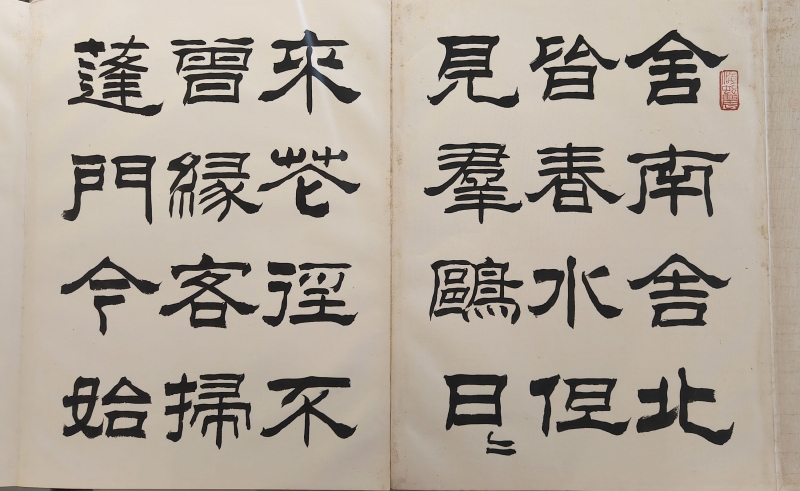 舍南舍北
皆春水但
見羣鷗日〻
來花徑不
曾緣客掃
蓬門今始